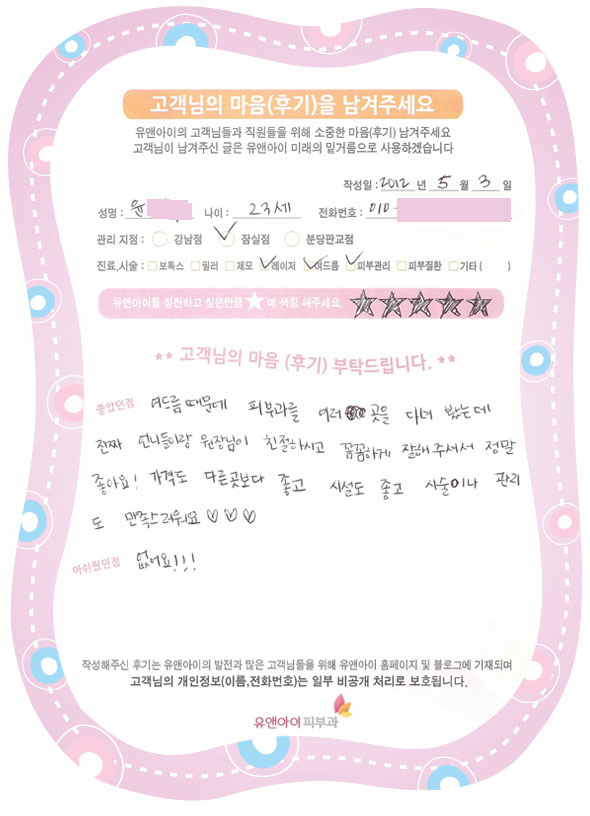 고객님의 마음(후기)을 남겨주세요
유앤아이의 고객님들과 직원들을 위해 소중한 마음(후기) 남겨주세요
고객님이 남겨주신 글은 유앤아이 미래의 밑거름으로 사용하겠습니다
작성일 : 2012 년 5 월 3 일
성명 : 윤 나이 : 23세 전화번호 : 010-
관리 지점 : 강남점 잠실점 분당판교점
진료,시술 : 보톡스 필러 제모 레이저 여드름 피부관리 피부질환 기타 ( )
유앤아이를 칭찬하고 싶은만큼 ★ 에 색칠 해주세요. ★★★★★
** 고객님의 마음 (후기) 부탁드립니다. **
좋았던점 여드름 때문에 피부과를 여러 곳을 다녀 봤는데
진짜 언니들이랑 원장님이 친절하시고 꼼꼼하게 잘해주셔서 정말
좋아요! 가격도 다른곳보다 좋고 시설도 좋고 시술이나 관리
도 만족스러워요 ♡♡♡
아쉬웠던점 없어요!!!
작성해주신 후기는 유앤아이의 발전과 많은 고객님들을 위해 유앤아이 홈페이지 및 블로그에 기재되며
고객님의 개인정보(이름,전화번호)는 일부 비공개 처리로 보호됩니다.
유앤아이피부과